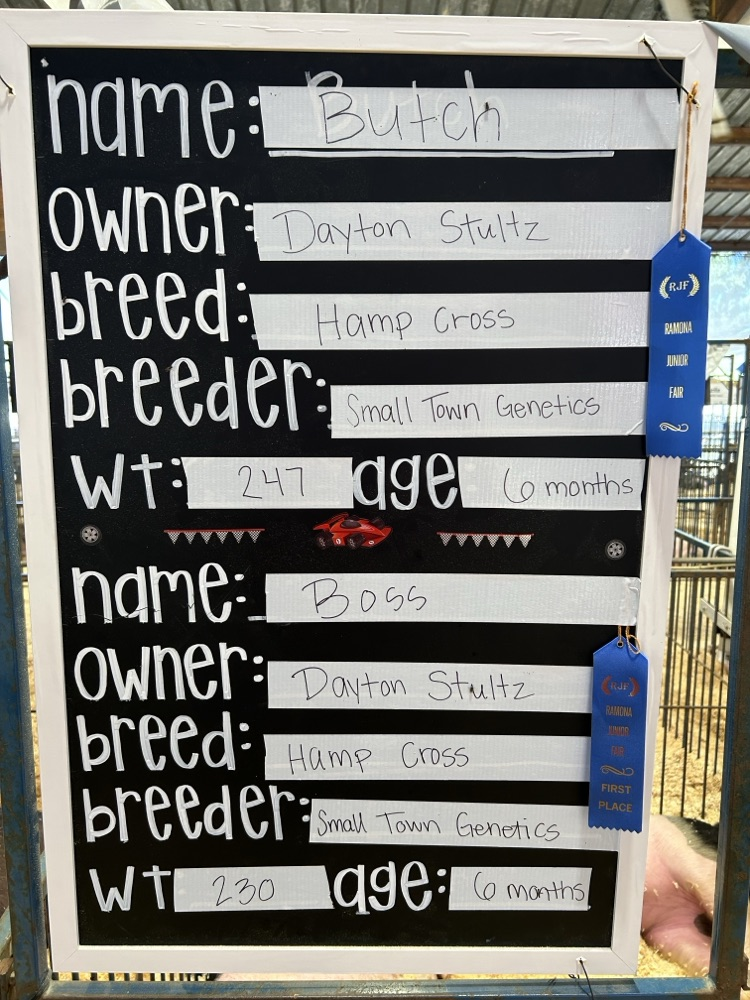 name: Butch
owner: Dayton Stultz
breed: Hamp Cross
breeder: Small Town Genetics
wt: 247 age 6 months
name: Boss
owner: Dayton Stultz
breed: Hamp Cross
breeder: Small Town Genetics
wt 230 age: 6 months
RJF
RAMONA
JUNIOR
FAIR
RJF
RAMONA
JUNIOR
FAIR
FIRST
PLACE